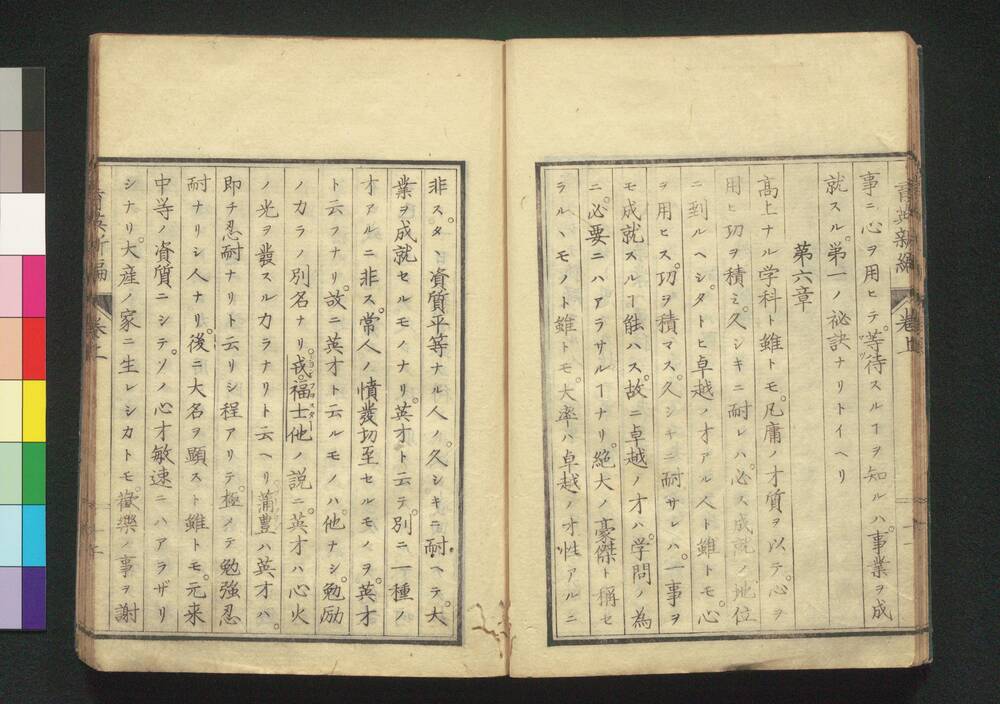 事ニ心ヲ用ヒテ。等待スルヿヲ知ルハ。事業ヲ成
就スル。第一ノ祕訣ナリトイヘリ
第六章
高上ナル学科ト雖トモ。凡庸ノ才質ヲ以テ。心ヲ
用ヒ功ヲ積ミ。久シキニ耐レハ。必ス成就ノ地位
ニ到ルヘシ。タトヒ卓越ノ才アル人ト雖トモ。心
ヲ用ヒス。功ヲ積マス。久シキニ耐サレハ。一事ヲ
モ成就スルヿ能ハス。故ニ卓越ノ才ハ。学問ノ為
ニ。必要ニハアラサルヿナリ。絶大ノ豪傑ト稱セ
ラルヽモノト雖トモ。大率ハ卓越ノ才性アルニ
非ス。タヽ資質平等ナル人ノ。久シキニ耐ヘテ。大
業ヲ成就セルモノナリ。英才ト云テ。別ニ一種ノ
才アルニ非ス。常人ノ憤發切至セルモノヲ。英才
ト云フナリ。故ニ英才ト云ルモノハ。他ナシ。勉励
ノカラノ別名ナリ。戎福士他ノ説ニ。英才ハ心火
ノ光ヲ發スルカラナリト云ヘリ蒲豊ハ英才ハ。
即チ忍耐ナリト云リシ程アリテ。極メテ勉強忍
耐ナリシ人ナリ。後ニ大名ヲ顕スト雖トモ。元来
中等ノ資質ニシテ。ソノ心才敏速ニハアラザリ
シナリ。大産ノ家ニ生レシカトモ。歓樂ノ事ヲ謝
育英新編
巻上